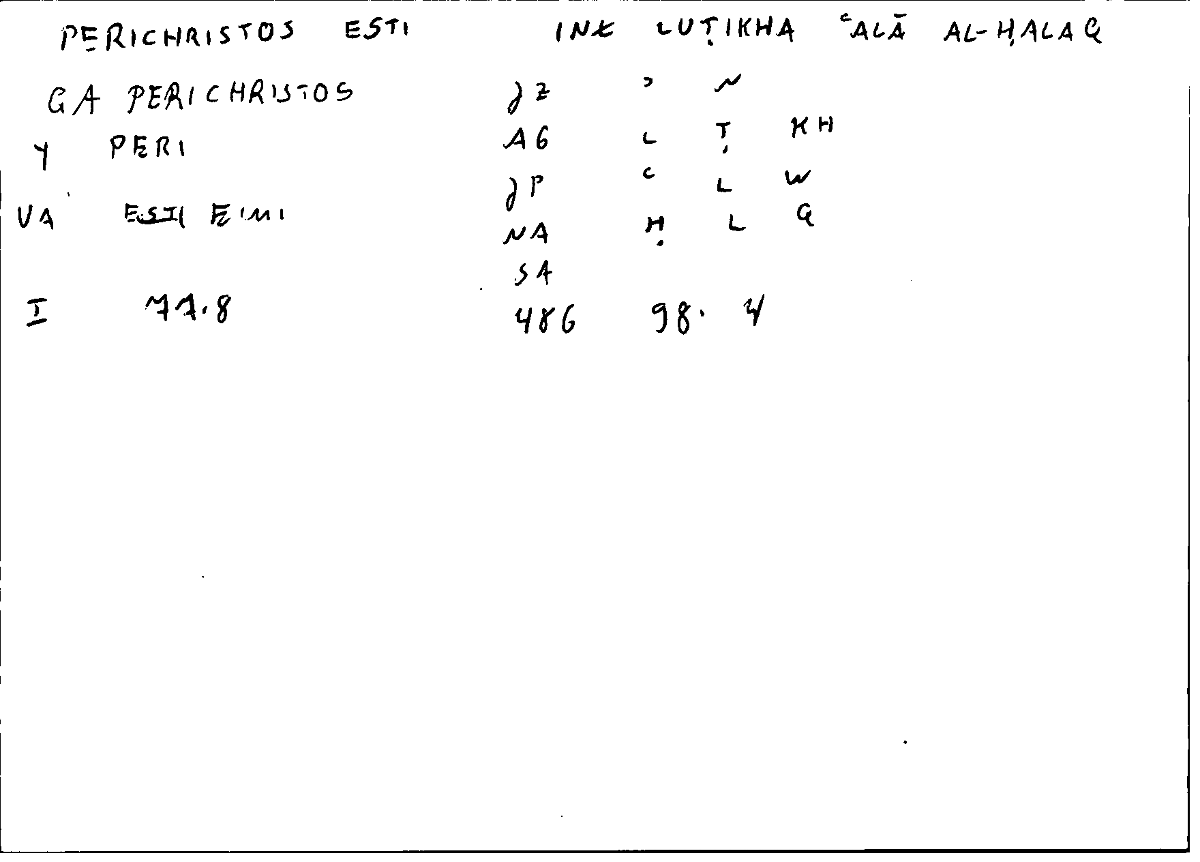 PERICHRISTOS ESTI INK LUṬIKHA ʿALĀ AL-ḤALAQ
GA PERICHRISTOS JZ ʾ N
Y PERI AG L Ṭ KH
JP ʿ L W
VA EIMI NA Ḥ L Q
SA
I 77.8 486 98. 4